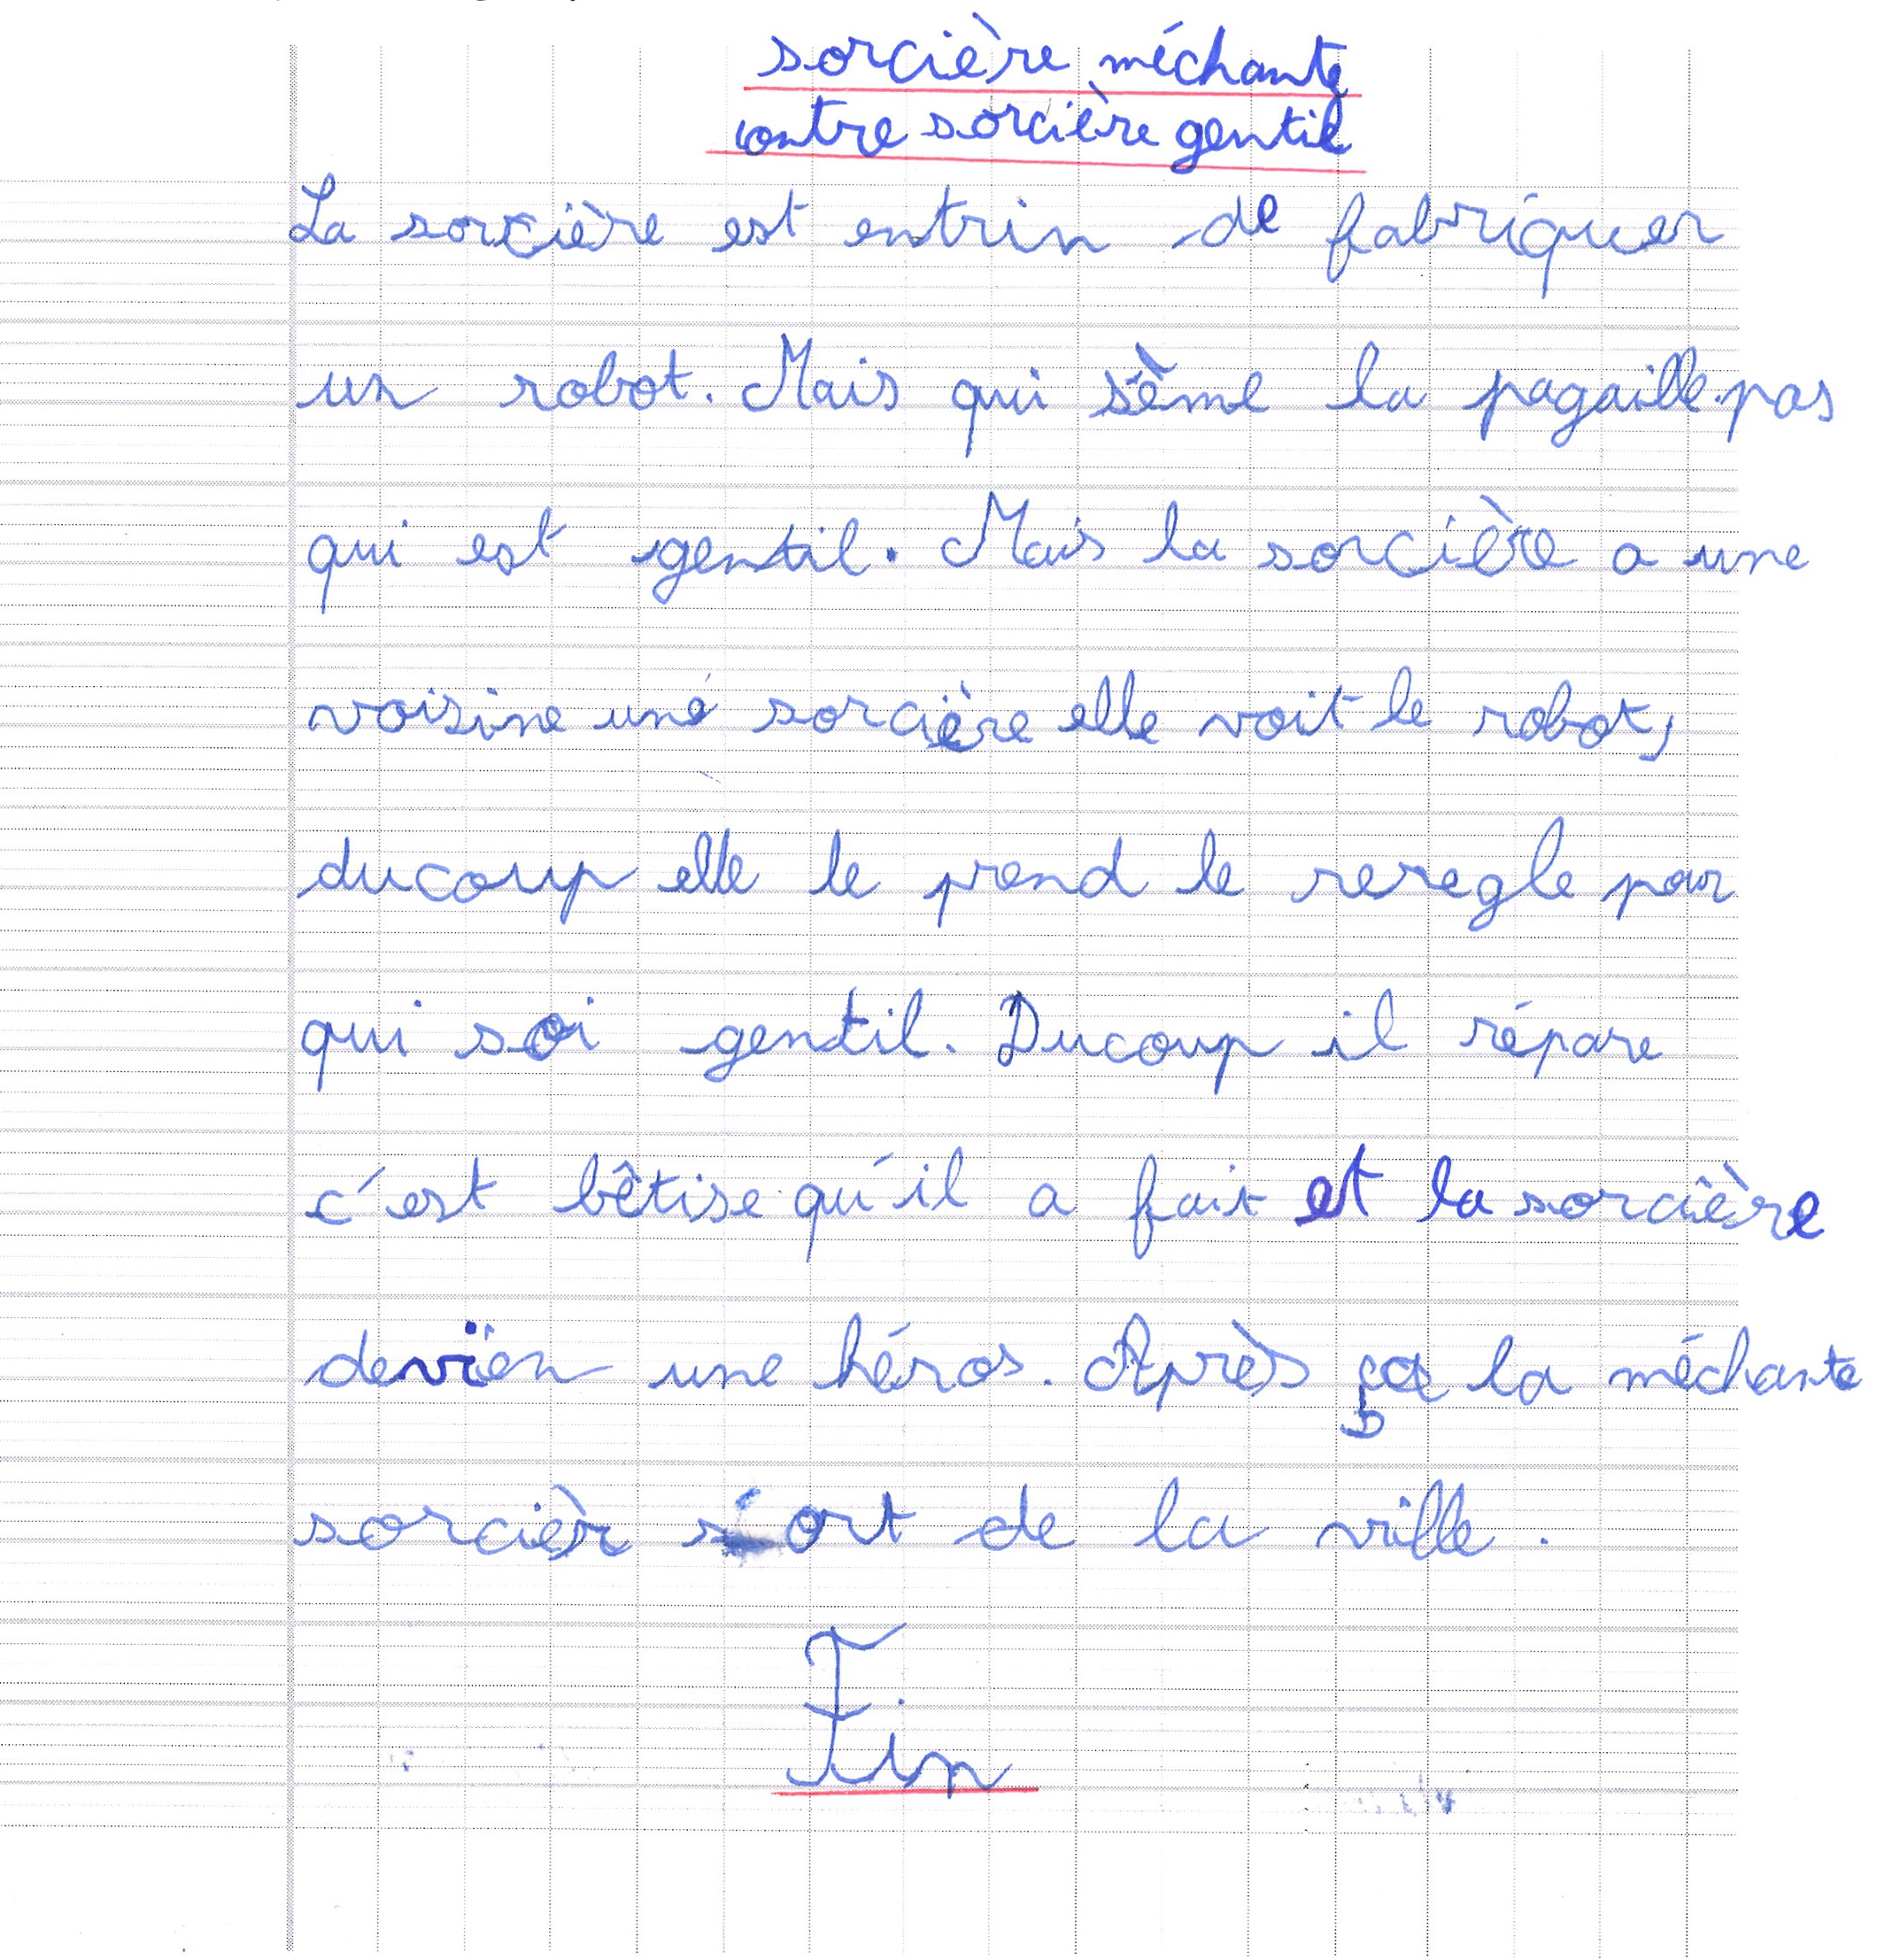 sorcière méchante
contre sorcière gentil
La sorcière est entrin de fabriquer
un robot. Mais qui sème la pagaille.pas
qui est gentil. Mais la sorcière a une
voisine une sorcière elle voit le robot,
ducoup elle le prend le reregle pour
qui soi gentil. Ducoup il répare
c'est bêtise qu'il a fait et la sorcière
devien une héros. Après ça la méchante
sorcièr sort de la ville.
Fin